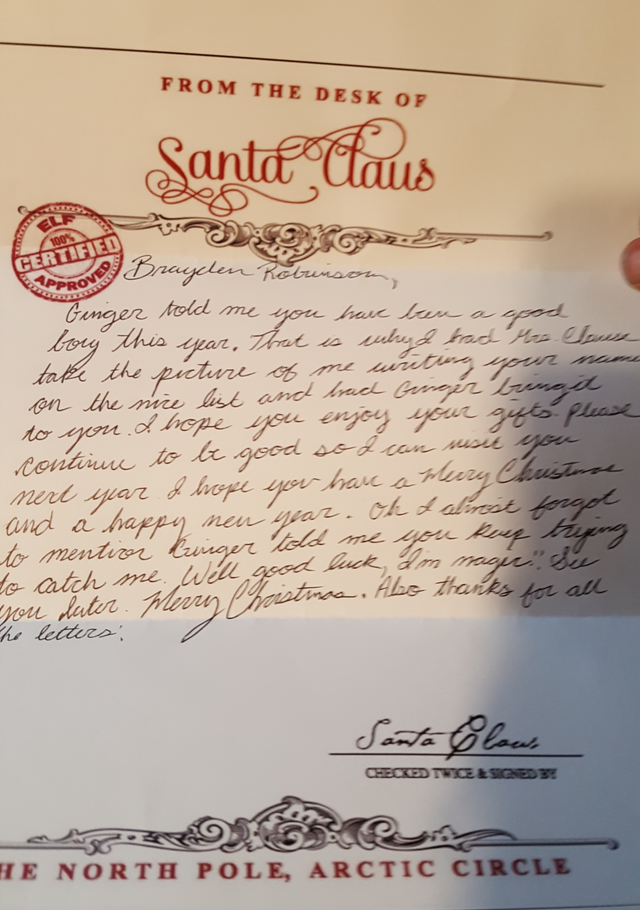 FROM THE DESK OF
Santa Claus
ELF
100%
CERTIFIED
APPROVED
Brayden Robinson,
Ginger told me you have been a good
boy this year. That is why I had Mrs. Clause
take the picture of me writing your name
on the nice list and had Ginger bring it
to you. I hope you enjoy your gifts. Please
continue to be good so I can visit you
next year. I hope you have a Merry Christmas
and a happy new year. Oh I almost forgot
to mention Ginger told me you keep trying
to catch me. Well good luck, I'm magic". See
you later. Merry Christmas. Also thanks for all
the letters.
Santa Claus
CHECKED TWICE & SIGNED BY
HE NORTH POLE, ARCTIC CIRCLE